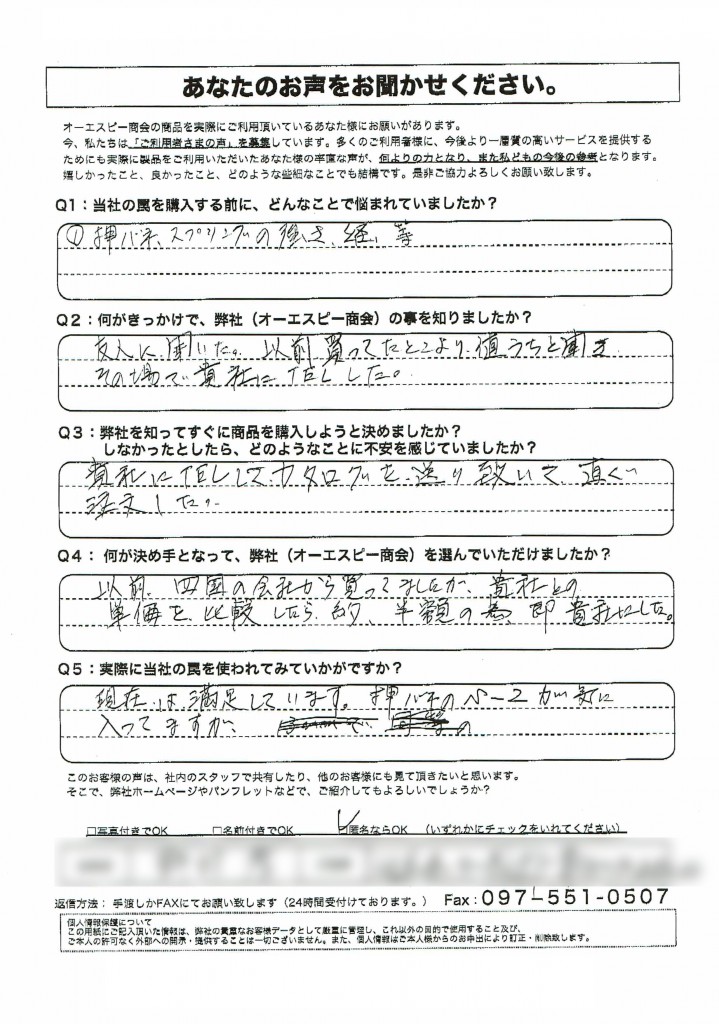 あなたのお声をお聞かせください。
オーエスピー商会の商品を実際にご利用頂いているあなた様にお願いがあります。
今、私たちは「ご利用者さまの声」を募集しています。多くのご利用者様に、今後より一層質の高いサービスを提供する
ためにも実際に製品をご利用いただいたあなた様の率直な声が、何よりの力となり、また私どもの今後の参考となります。
嬉しかったこと、良かったこと、どのような些細なことでも結構です。是非ご協力よろしくお願い致します。
Q1:当社の罠を購入する前に、どんなことで悩まれていましたか?
① 押バネ、スプリングの強さ、経、等
Q2:何がきっかけで、弊社(オーエスピー商会)の事を知りましたか?
友人に聞いた。以前買ってたとこより値うちと聞き
その場で貴社にTELした。
Q3:弊社を知ってすぐに商品を購入しようと決めましたか?
しなかったとしたら、どのようなことに不安を感じていましたか?
貴社にTELしてカタログを送り致いて直ぐ
注文した。
Q4: 何が決め手となって、弊社(オーエスピー商会)を選んでいただけましたか?
以前、四国の会社から買ってましたが、貴社との
単価を比較したら、約、半額の為、即貴社にした。
Q5:実際に当社の罠を使われてみていかがですか?
現在は満足しています。押バネのベースが気に
入ってますが、
このお客様の声は、社内のスタッフで共有したり、他のお客様にも見て頂きたいと思います。
そこで、弊社ホームページやパンフレットなどで、ご紹介してもよろしいでしょうか?
□写真付きでOK □名前付きでOK ☑匿名ならOK (いずれかにチェックをいれてください)
返信方法: 手渡しかFAXにてお願い致します(24時間受付けております。) Fax:097-551-0507
個人情報保護について
この用紙にご記入頂いた情報は、弊社の貴重なお客様データとして厳重に管理し、これ以外の目的で使用すること及び、
ご本人の許可なく外部への開示・提供することは一切ございません。また、個人情報はご本人様からのお申出により訂正・削除致します。